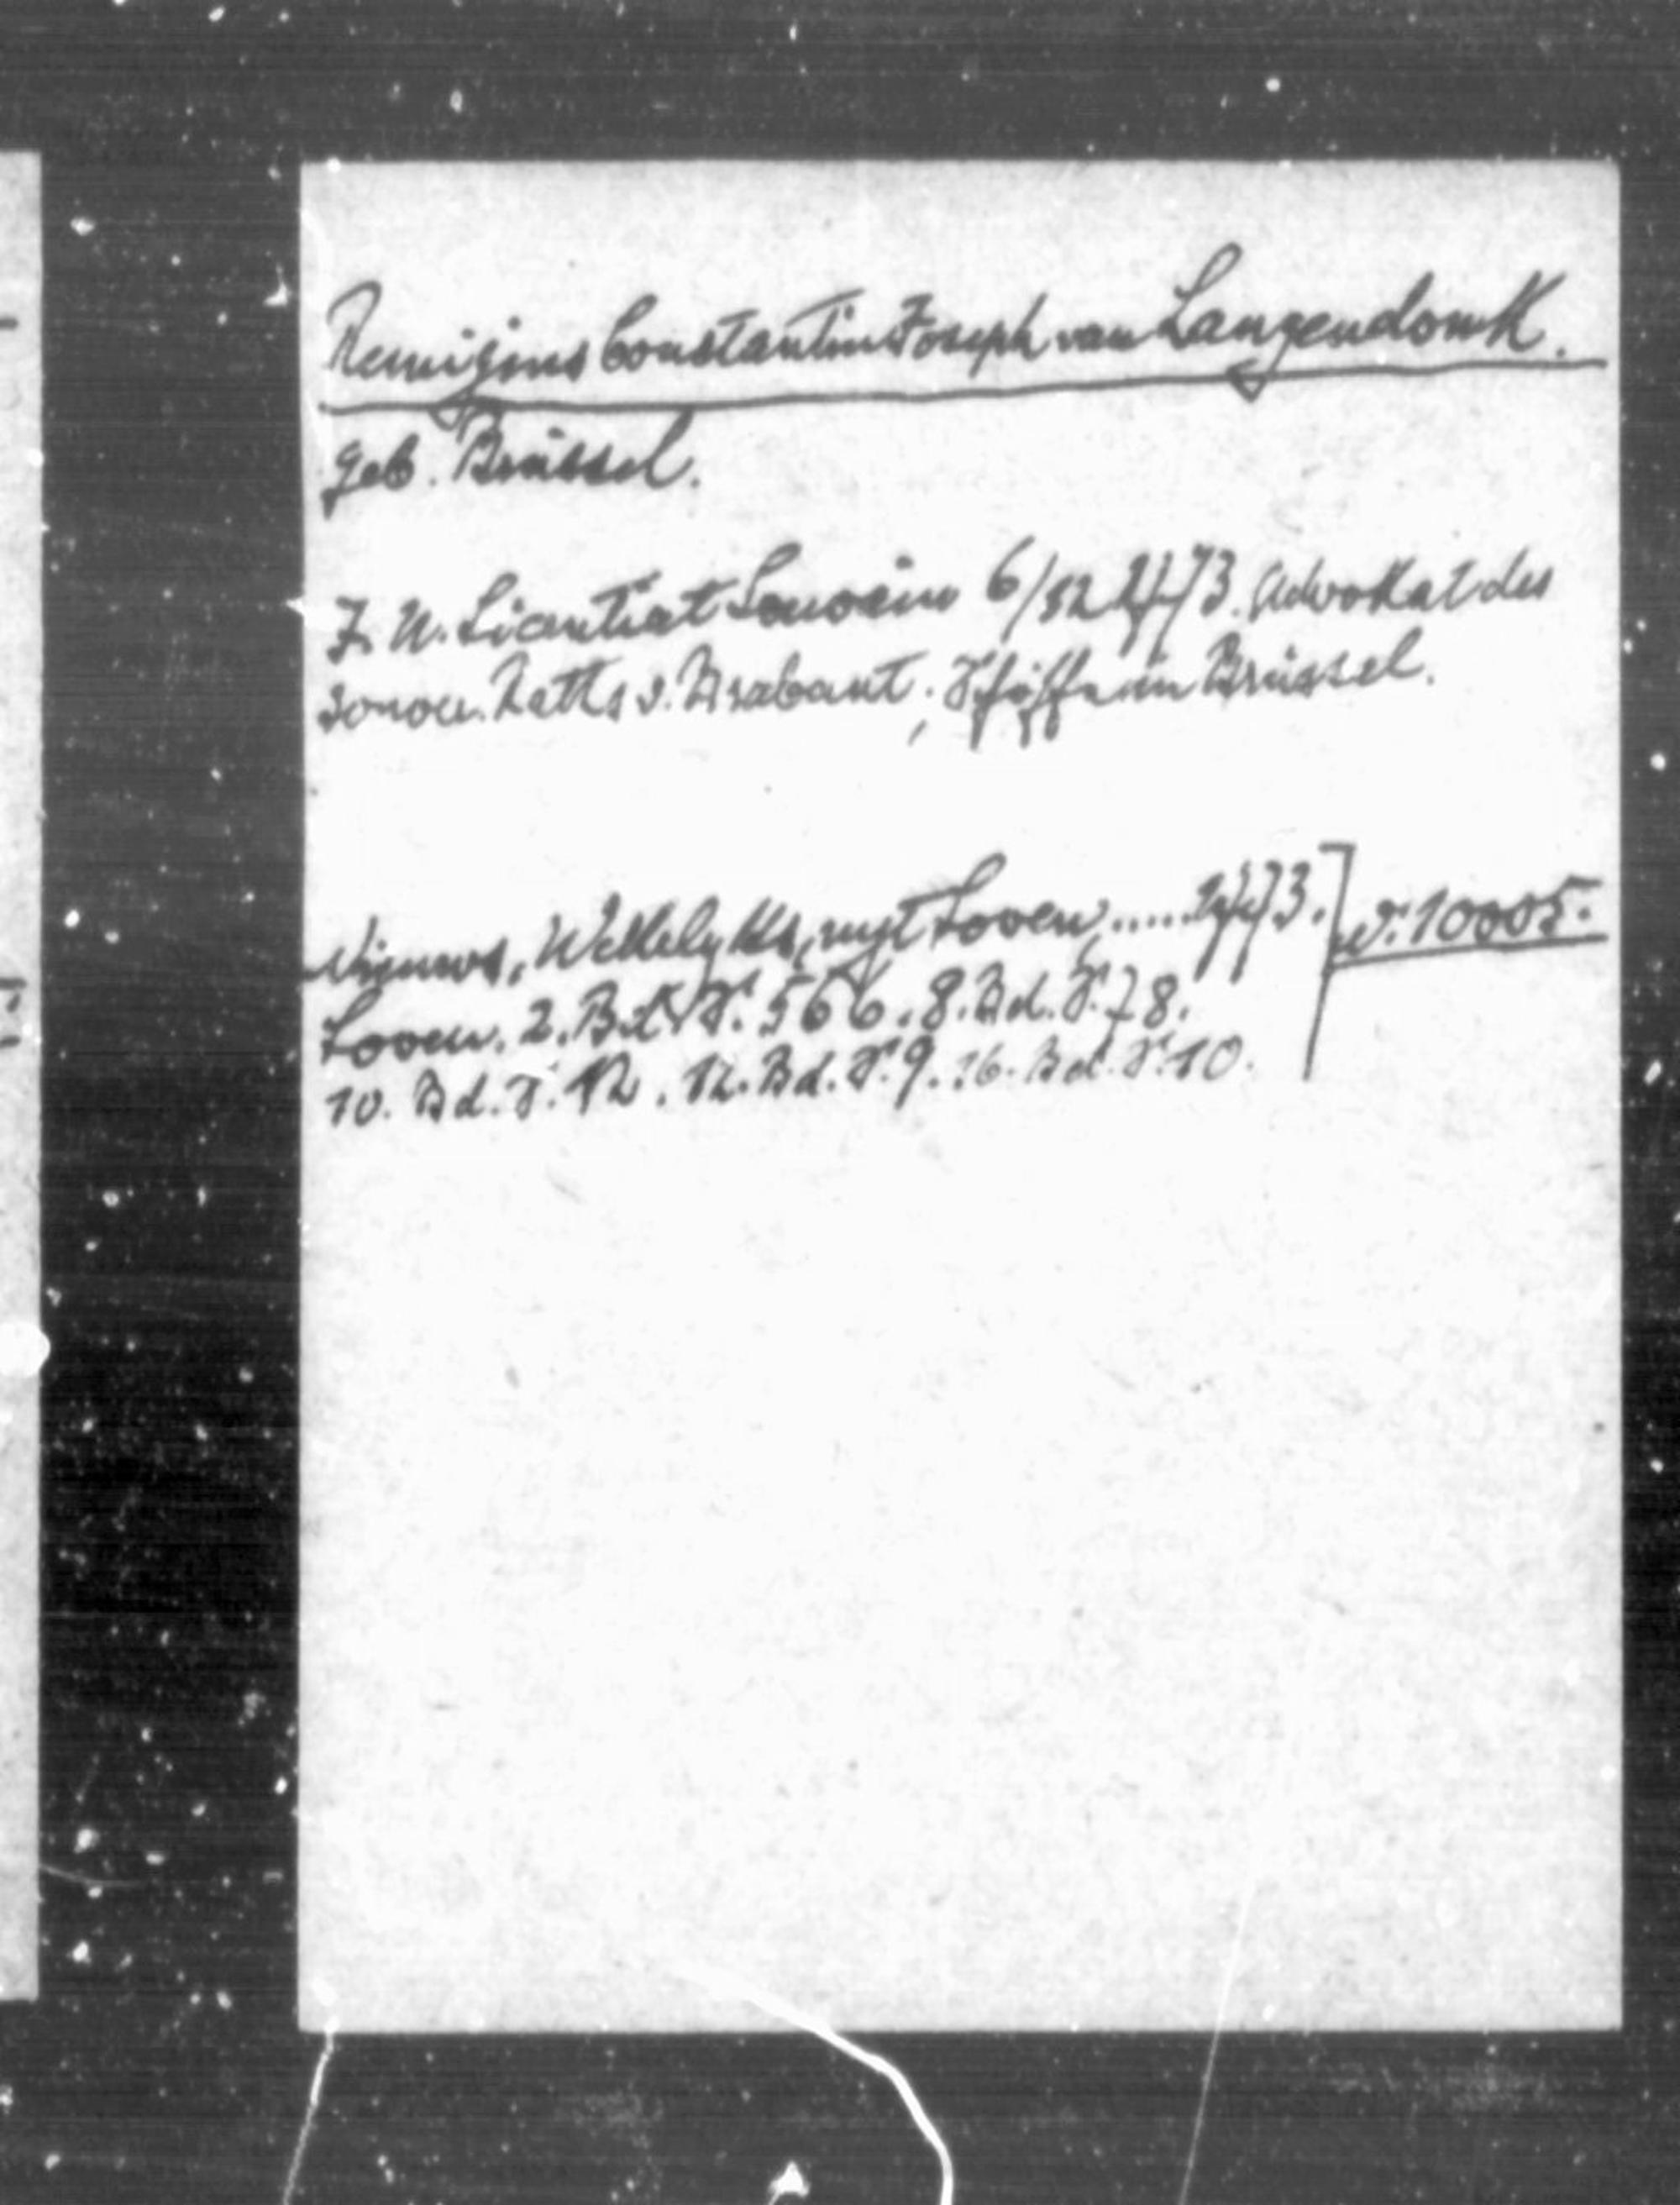 Remigius Constantin Joseph van Langendonck.
geb. Brüssel.
J. U. Licentiat Louvain 6/12 1773. Advokat des
souv. Raths v. Brabant; Schöffe in Brüssel.
Nieuws, Wekelyks, uyt Loven.....1773.
Loven. 2. Bd. S. 566. 8. Bd. S. 78.
10. Bd. S. 12. 12. Bd. S. 9. 16. Bd. S. 10.
10005.